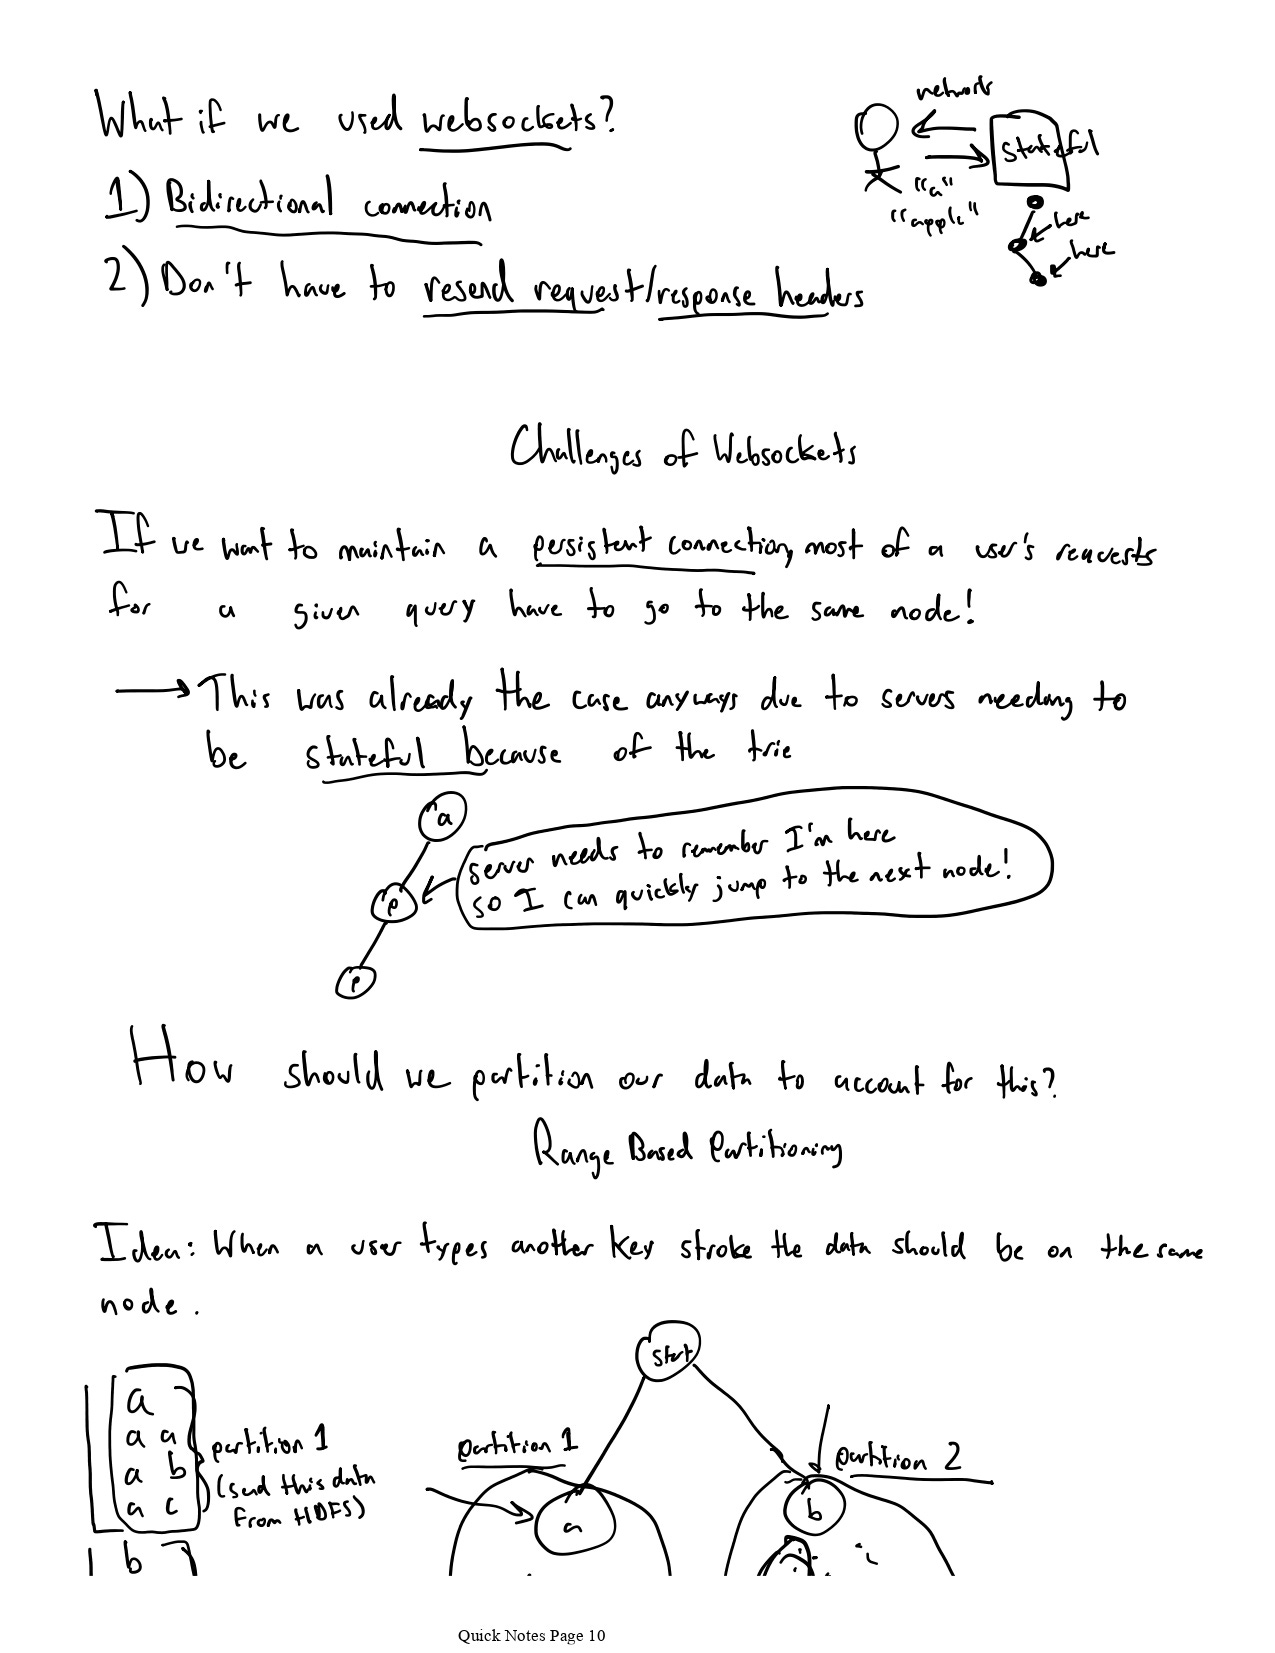 What if we used websockets?
1) Bidirectional connection
2) Don't have to resend request/response headers
network
stateful
"a"
"apple"
here
here
Challenges of Websockets
If we want to maintain a persistent connection, most of a user's requests
for a given query have to go to the same node!
→ This was already the case anyways due to servers needing to
be stateful because of the trie
a
p
p
server needs to remember I'm here
so I can quickly jump to the next node!
How should we partition our data to account for this?
Range Based Partitioning
Idea: When a user types another key stroke the data should be on the same
node.
start
a
a a
a b
a c
b
partition 1
(send this data
from HDFS)
partition 1
a
partition 2
b
Quick Notes Page 10